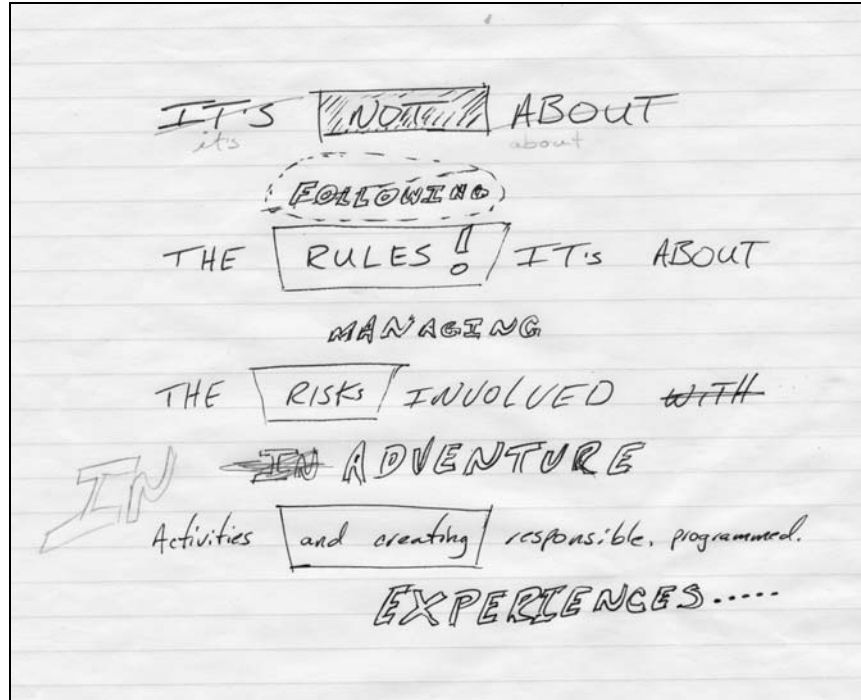 IT'S NOT ABOUT
it's about
FOLLOWING
THE RULES! IT'S ABOUT
MANAGING
THE RISKS INVOLVED WITH
IN IN ADVENTURE
Activities and creating responsible, programmed.
EXPERIENCES.....